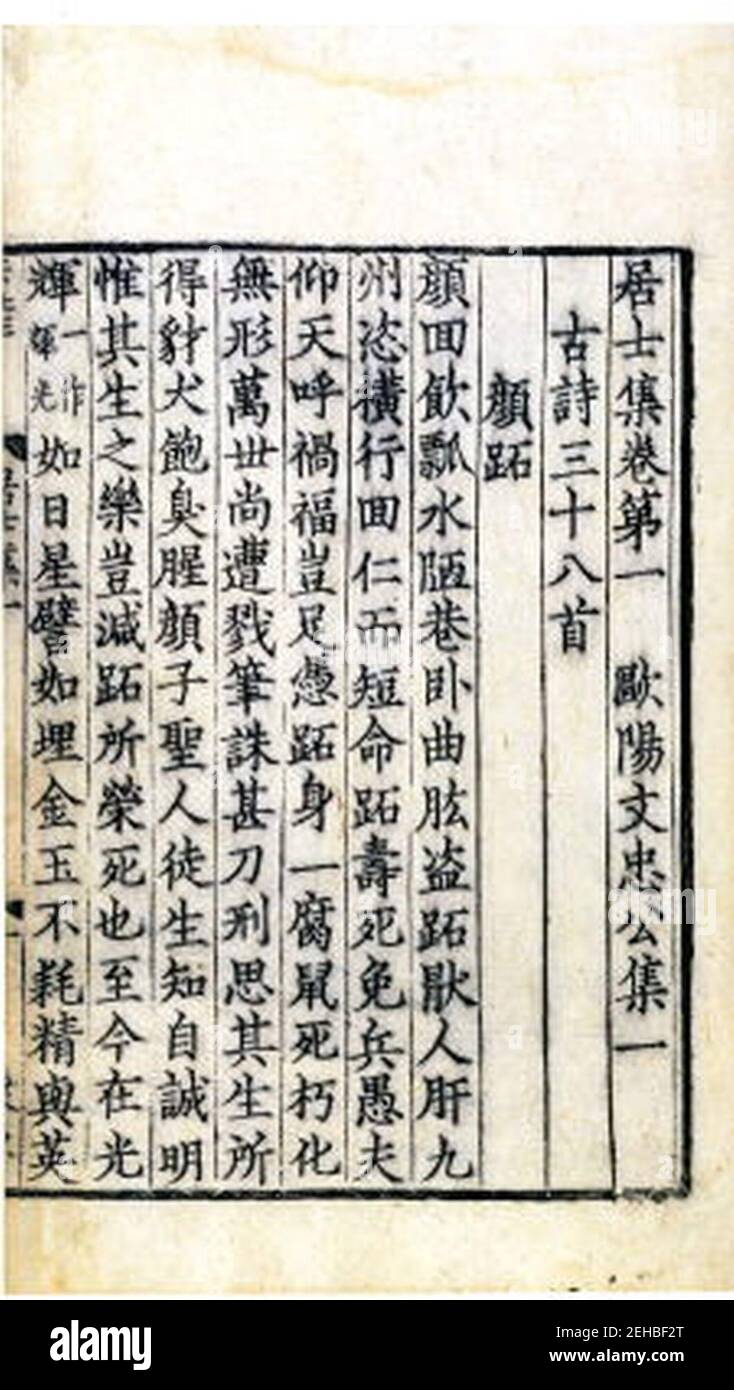 居士集卷第一 歐陽文忠公集一
古詩三十八首
顏跖
顏回飲瓢水陋巷卧曲肱盗跖猒人肝九
州恣橫行回仁而短命跖壽死免兵愚夫
仰天呼禍福豈足憑跖身一腐鼠死朽化
無形萬世尚遭戮筆誅甚刀刑思其生所
得豺犬飽臭腥顏子聖人徒生知自誠明
惟其生之樂豈減跖所榮死也至今在光
輝一作輝光如日星譬如埋金玉不耗精與英
alamy
Image ID: 2EHBF2T
www.alamy.com